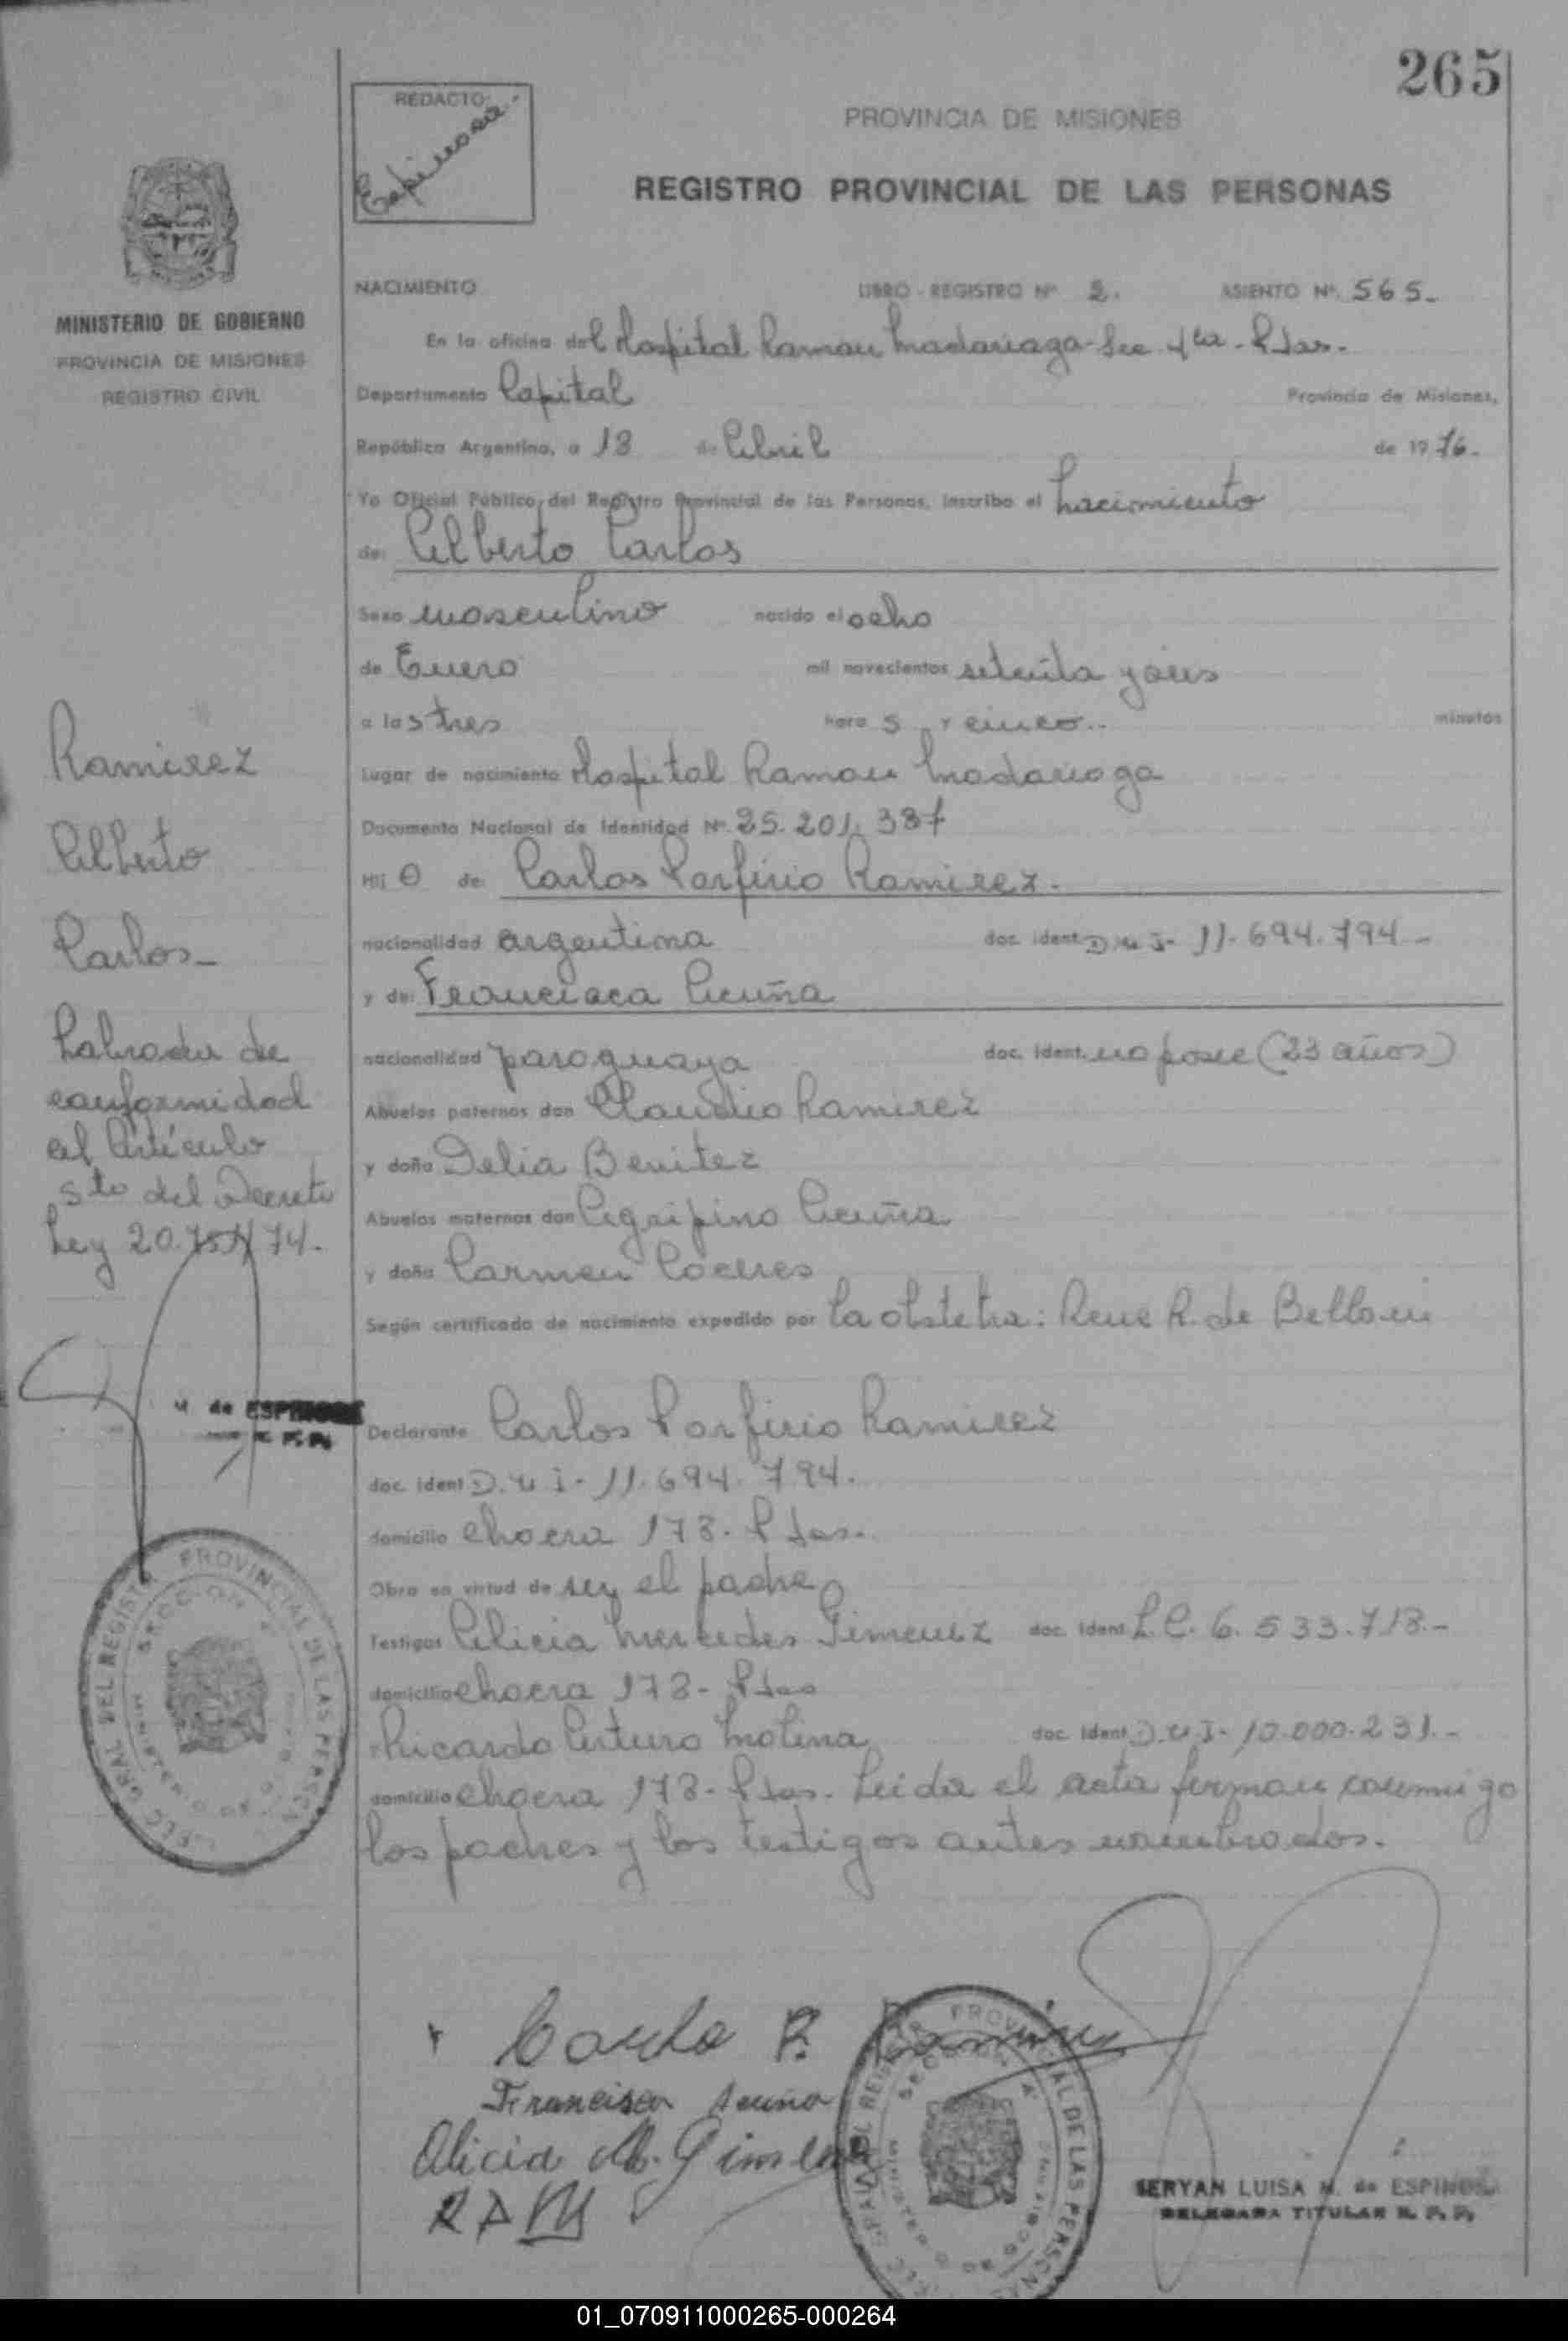 265
REDACTO:
Espinosa.-
PROVINCIA DE MISIONES
REGISTRO PROVINCIAL DE LAS PERSONAS
MINISTERIO DE GOBIERNO
PROVINCIA DE MISIONES
REGISTRO CIVIL
NACIMIENTO LIBRO - REGISTRO Nº 2. ASIENTO Nº. 565-
En la oficina del Hospital Ramon Madariaga - Sec 4ta - Pdas.-
Departamento Capital Provincia de Misiones,
República Argentina, a 13 de Abril de 1976.-
Yo Oficial Público, del Registro Provincial de las Personas, inscribo el nacimiento
de: Alberto Carlos
Sexo masculino nacido el ocho
de Enero mil novecientos setenta y
a las tres hora s y cinco.. minutos
Lugar de nacimiento Hospital Ramon Madariaga
Documento Nacional de Identidad Nº 25.201.387
Hij o de: Carlos Porfirio Ramirez.-
nacionalidad argentina doc. ident. D.N.I- 11.694.794-
y de: Francisca Acuña
nacionalidad paraguaya doc. ident. no posee (23 años)
Abuelos paternos don Claudio Ramirez
y doña Delia Benitez
Abuelos maternos don Agripino Acuña
y doña Carmen
Según certificado de nacimiento expedido por la obstetra: Rene R. de Belloni
Declarante Carlos Porfirio Ramirez
doc. ident D.N.I- 11.694.794.
domicilio chacra 178. Pdas.-
Obra en virtud de ser el padre
Testigos Alicia Mercedes Gimenez doc. ident L.C. 6.533.718.-
domicilio chacra 178- Pdas
y Ricardo Arturo Molina doc. ident D.N.I- 10.000.231.-
domicilio chacra 178- Pdas. Leida el acta firman conmigo
los padres y los testigos antes nombrados.-
Ramirez
Alberto
Carlos-
Labrada de
conformidad
al Articulo
5to del Decreto
Ley 20.751/74.-
de ESPINOSA
PROVINCIAL DE LAS PERSONAS
Carlos P. Ramirez
Francisca Acuña
Alicia M. Gimenez
RAM
SERYAN LUISA N. de ESPINOSA
DELEGADA TITULAR R. P. P.
01_070911000265-000264